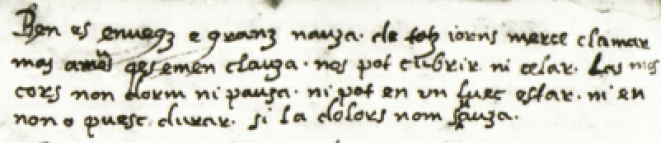 Ben es enuegz e granz nauza. de totz iorns merce clamar
mas amors qes emen clauza. nos pot cubrir ni celar. Las mos
cors non dorm ni pausa. ni pot en un luec estar. ni eu
non o puesc durar. si la dolors nom suauza.